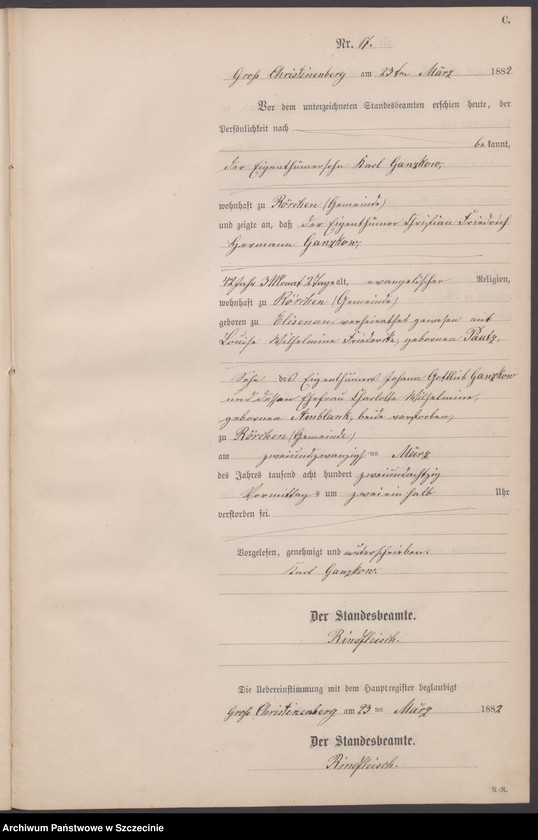 C.
Nr. 17.
Groß Christinenberg am 23ten März 1882.
Vor dem unterzeichneten Standesbeamten erschien heute, der
Persönlichkeit nach
bekannt,
der Eigenthümersohn Karl Ganzkow,
wohnhaft zu Rörchen (Gemeinde)
und zeigte an, daß der Eigenthümer Christian Friedrich
Hermann Ganzkow,
42 Jahr 3 Monat 2 Tage alt, evangelischer Religion,
wohnhaft zu Rörchen (Gemeinde)
geboren zu Elisenau, verheirathet gewesen mit
Louise Wilhelmine Friederike, geborenen Pautz,
Sohn des Eigenthümers Johann Gottlieb Ganzkow
und dessen Ehefrau Charlotte Wilhelmine,
geborenen beide verstorben,
zu Rörchen (Gemeinde)
am zweiundzwanzigsten März
des Jahres tausend acht hundert zweiundachtzig
Vormittags um zweieinhalb Uhr
verstorben sei.
Vorgelesen, genehmigt und unterschrieben.
Karl Ganzkow.
Der Standesbeamte.
Rindfleisch.
Die Uebereinstimmung mit dem Hauptregister beglaubigt
Groß Christinenberg am 23ten März 1882
Der Standesbeamte.
Rindfleisch.
Archiwum Państwowe w Szczecinie